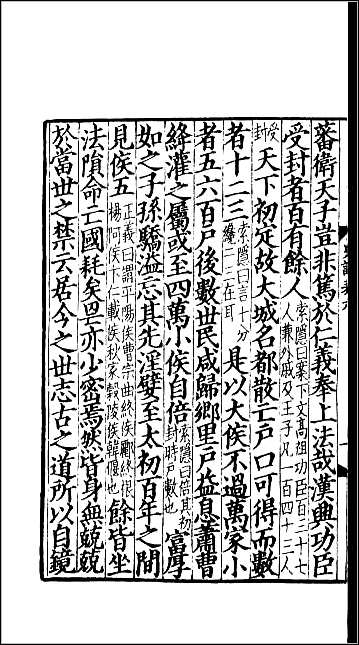 蕃衛天子豈非篤於仁義奉上法哉漢興功臣
受封者百有餘人索隱曰案下文高祖功臣百三十七人兼外戚及王子凡一百四十三人
受封天下初定故大城名都散亡戶口可得而數
者十二三索隱曰言十分纔二三在耳是以大侯不過萬家小
者五六百戶後數世民咸歸鄉里戶益息蕭曹
絳灌之屬或至四萬小侯自倍索隱曰倍其初封時戶數也富厚
如之子孫驕溢忘其先淫嬖至太初百年之間
見侯五正義曰謂平陽侯曹宗曲終侯酈終根陽阿侯卞仁戴侯秋家穀陵侯韓偃也餘皆坐
法隕命亡國耗矣罔亦少密焉然皆身無兢兢
於當世之禁云居今之世志古之道所以自鏡